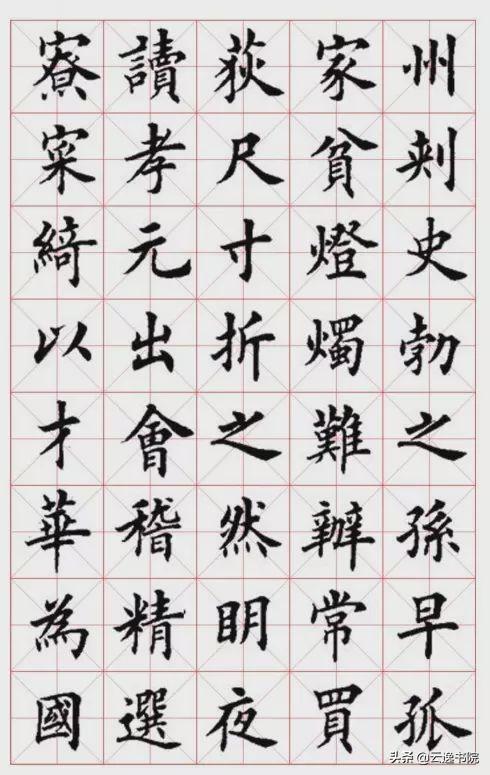 州刺史勃之孫早孤
家貧燈燭難辦常買
荻尺寸折之然明夜
讀孝元出會稽精選
寮寀綺以才華為國
头条 @云逸书院